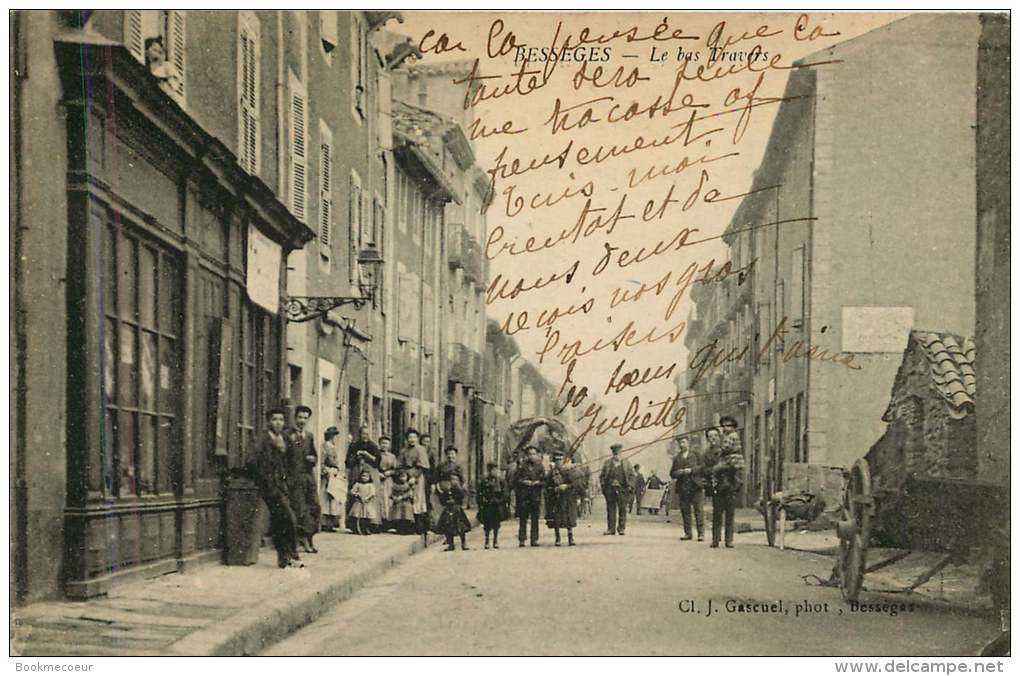 BESSÈGES — Le bas Travers
car la pensée que ca
toute sera seule
me tracasse af
pensement
Tuis moi
bientat et de
nous deux
reçois nos gros
baisers
ta sœur qui t'aime
Juliette
Cl. J. Gascuel, phot , Bessèges
Bookmecoeur
www.delcampe.net